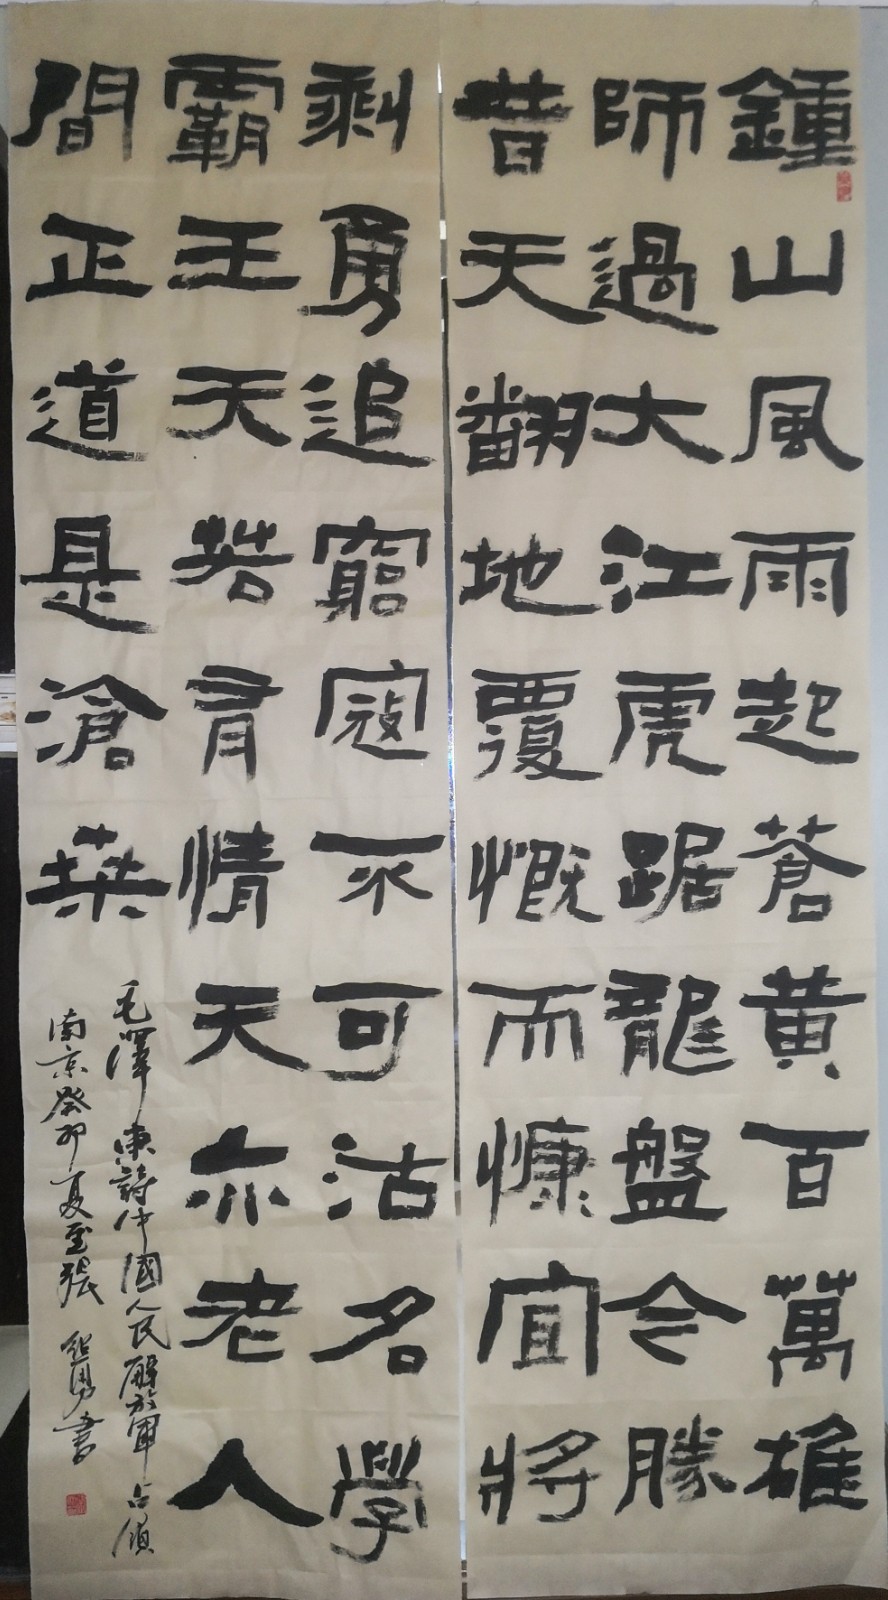 鍾山風雨起蒼黃百萬雄
師過大江虎踞龍盤今勝
昔天翻地覆慨而慷宜將
剩勇追窮寇不可沽名學
霸王天若有情天亦老人
間正道是滄桑
毛澤東詩中國人民解放軍占領
南京癸卯夏至張勇書